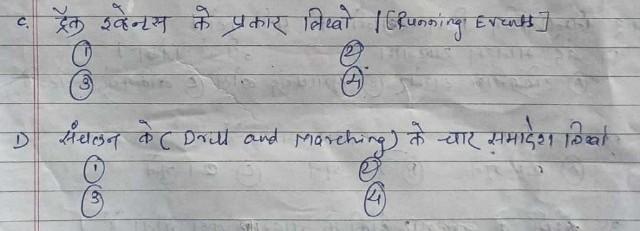 C. ट्रॅक इव्हेन्टस के प्रकार लिखो। [Running Events]
① ②
③ ④
D) संचलन के (Drill and Marching) के चार समादेश लिखो
① ②
③ ④